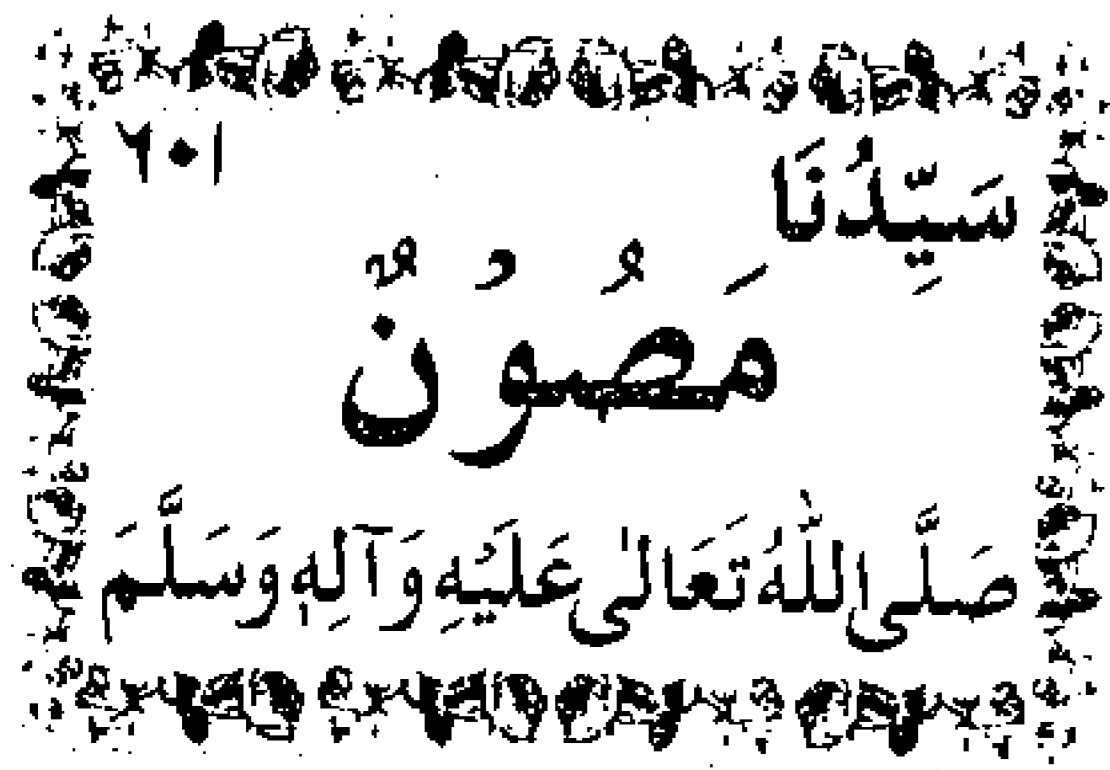 ۶۰۱
سَيِّدُنَا
مَصُوْنٌ
صَلَّى اللّٰهُ تَعَالٰى عَلَيْهِ وَآلِهٖ وَسَلَّمَ